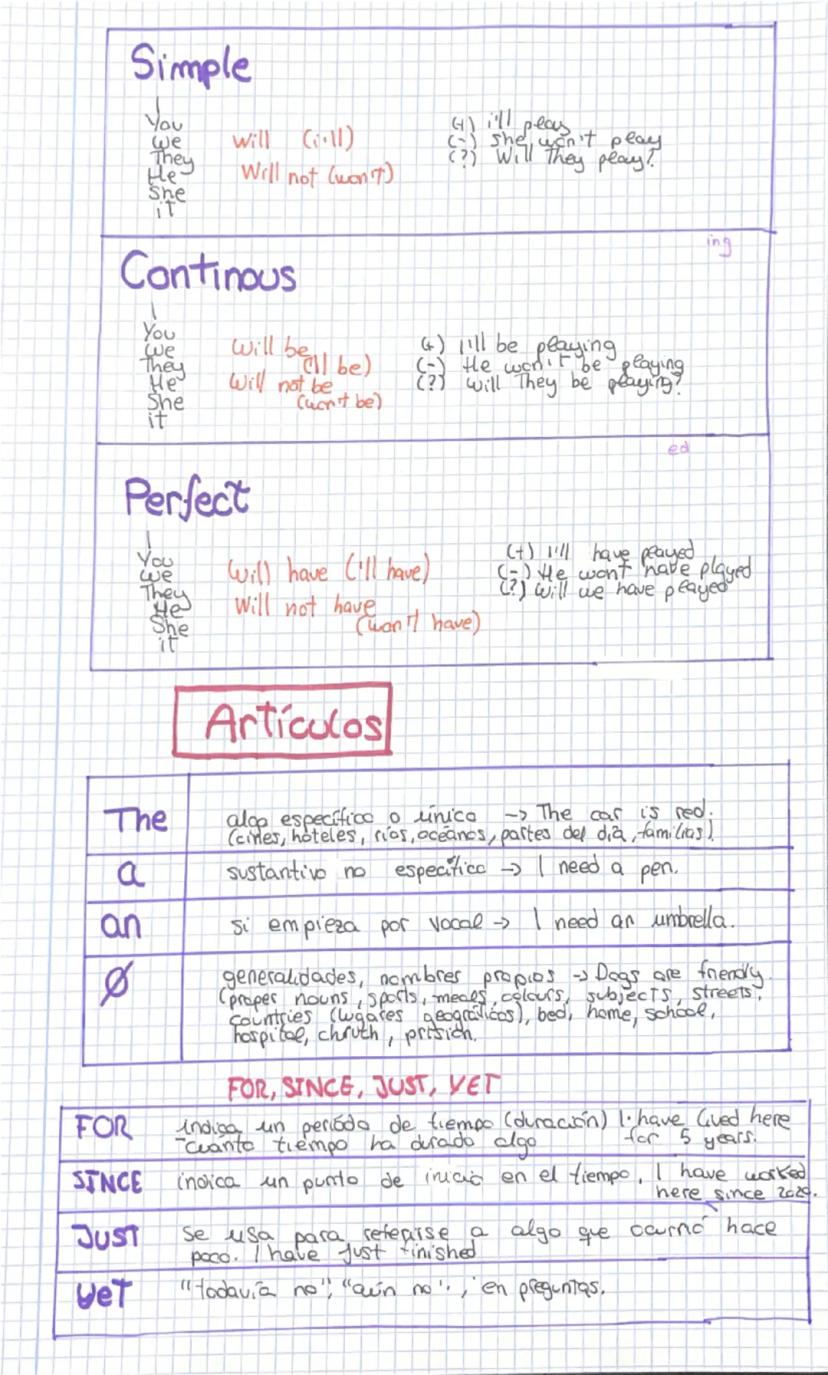 Simple
I
You
we
They
He
She
it
will (i'll)
Will not (won't)
(+) i'll play
(-) She won't play
(?) Will They play?
ing
Continous
I
You
we
They
He
She
it
Will be
('ll be)
Will not be
(won't be)
(+) I'll be playing
(-) He won't be playing
(?) Will They be playing?
ed
Perfect
I
You
we
They
He
She
it
Will have ('ll have)
Will not have
(won't have)
(+) I'll have played
(-) He won't have played
(?) Will we have played
Artículos
The
algo específico o único → The car is red.
(cines, hoteles, ríos, océanos, partes del día, familias)
a
sustantivo no específico → I need a pen.
an
si empieza por vocal → I need an umbrella.
Ø
generalidades, nombres propios → Dogs are friendly.
(proper nouns, sports, meals, colours, subjects, streets,
countries (lugares geográficos), bed, home, school,
hospital, chruth, prision.
FOR, SINCE, JUST, YET
FOR
indica un período de tiempo (duración) I have lived here
cuanto tiempo ha durado algo for 5 years.
SINCE
indica un punto de inicio en el tiempo. I have worked
here since
JUST
Se usa para referirse a algo que ocurrió hace
poco. I have just finished
YeT
"todavía no", "aún no", en preguntas.